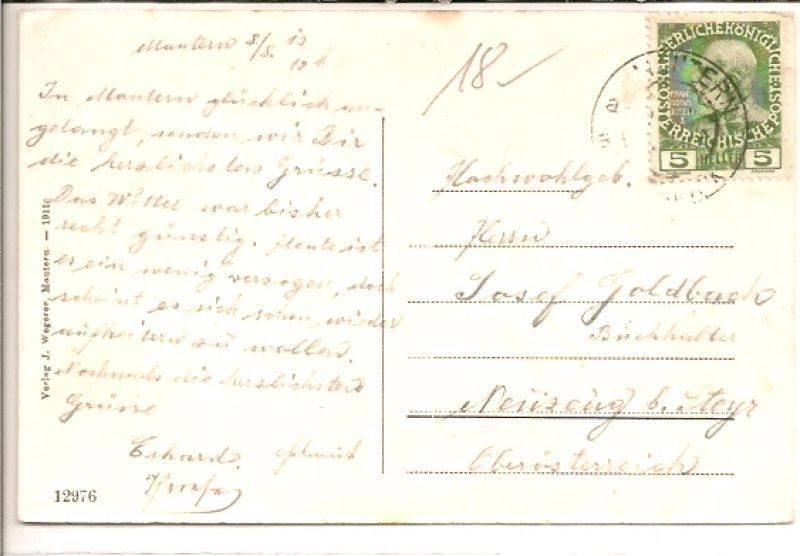 Mautern 8/8. 12
12 h
In Mautern glücklich an-
gelangt, senden wir Dir
die herzlichsten Grüsse.
Das Wetter war bisher
recht günstig. Heute ist
es ein wenig verzogen, doch
scheint es sich schon wieder
aufheitern zu wollen.
Nochmals die herzlichsten
Grüsse
Erhard.
18
KAISERLICHE KÖNIGLICHE
ÖSTERREICHISCHE POST
5 HELLER 5
Hochwohlgeb.
Herrn
Josef Goldbach
Buchhalter
Neuzeug b. Steyr
Oberösterreich
Verlag J. Wegerer, Mautern. — 1911
12976